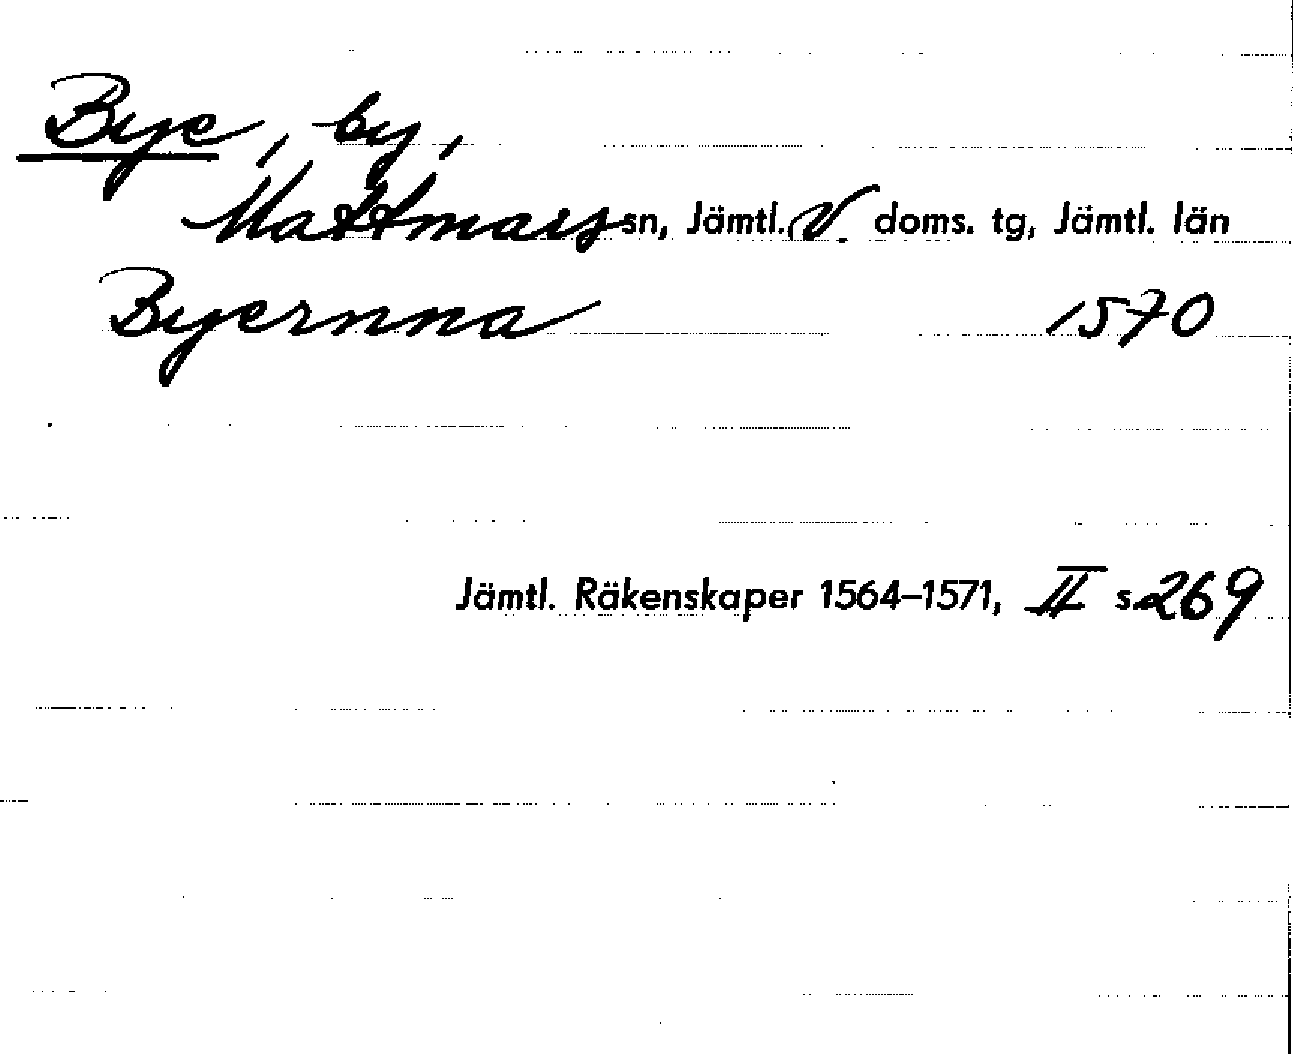 Bye, by,
Mattmars sn, Jämtl. V. doms. tg, Jämtl. län
Byernna 1570
Jämtl. Räkenskaper 1564–1571, II s. 269